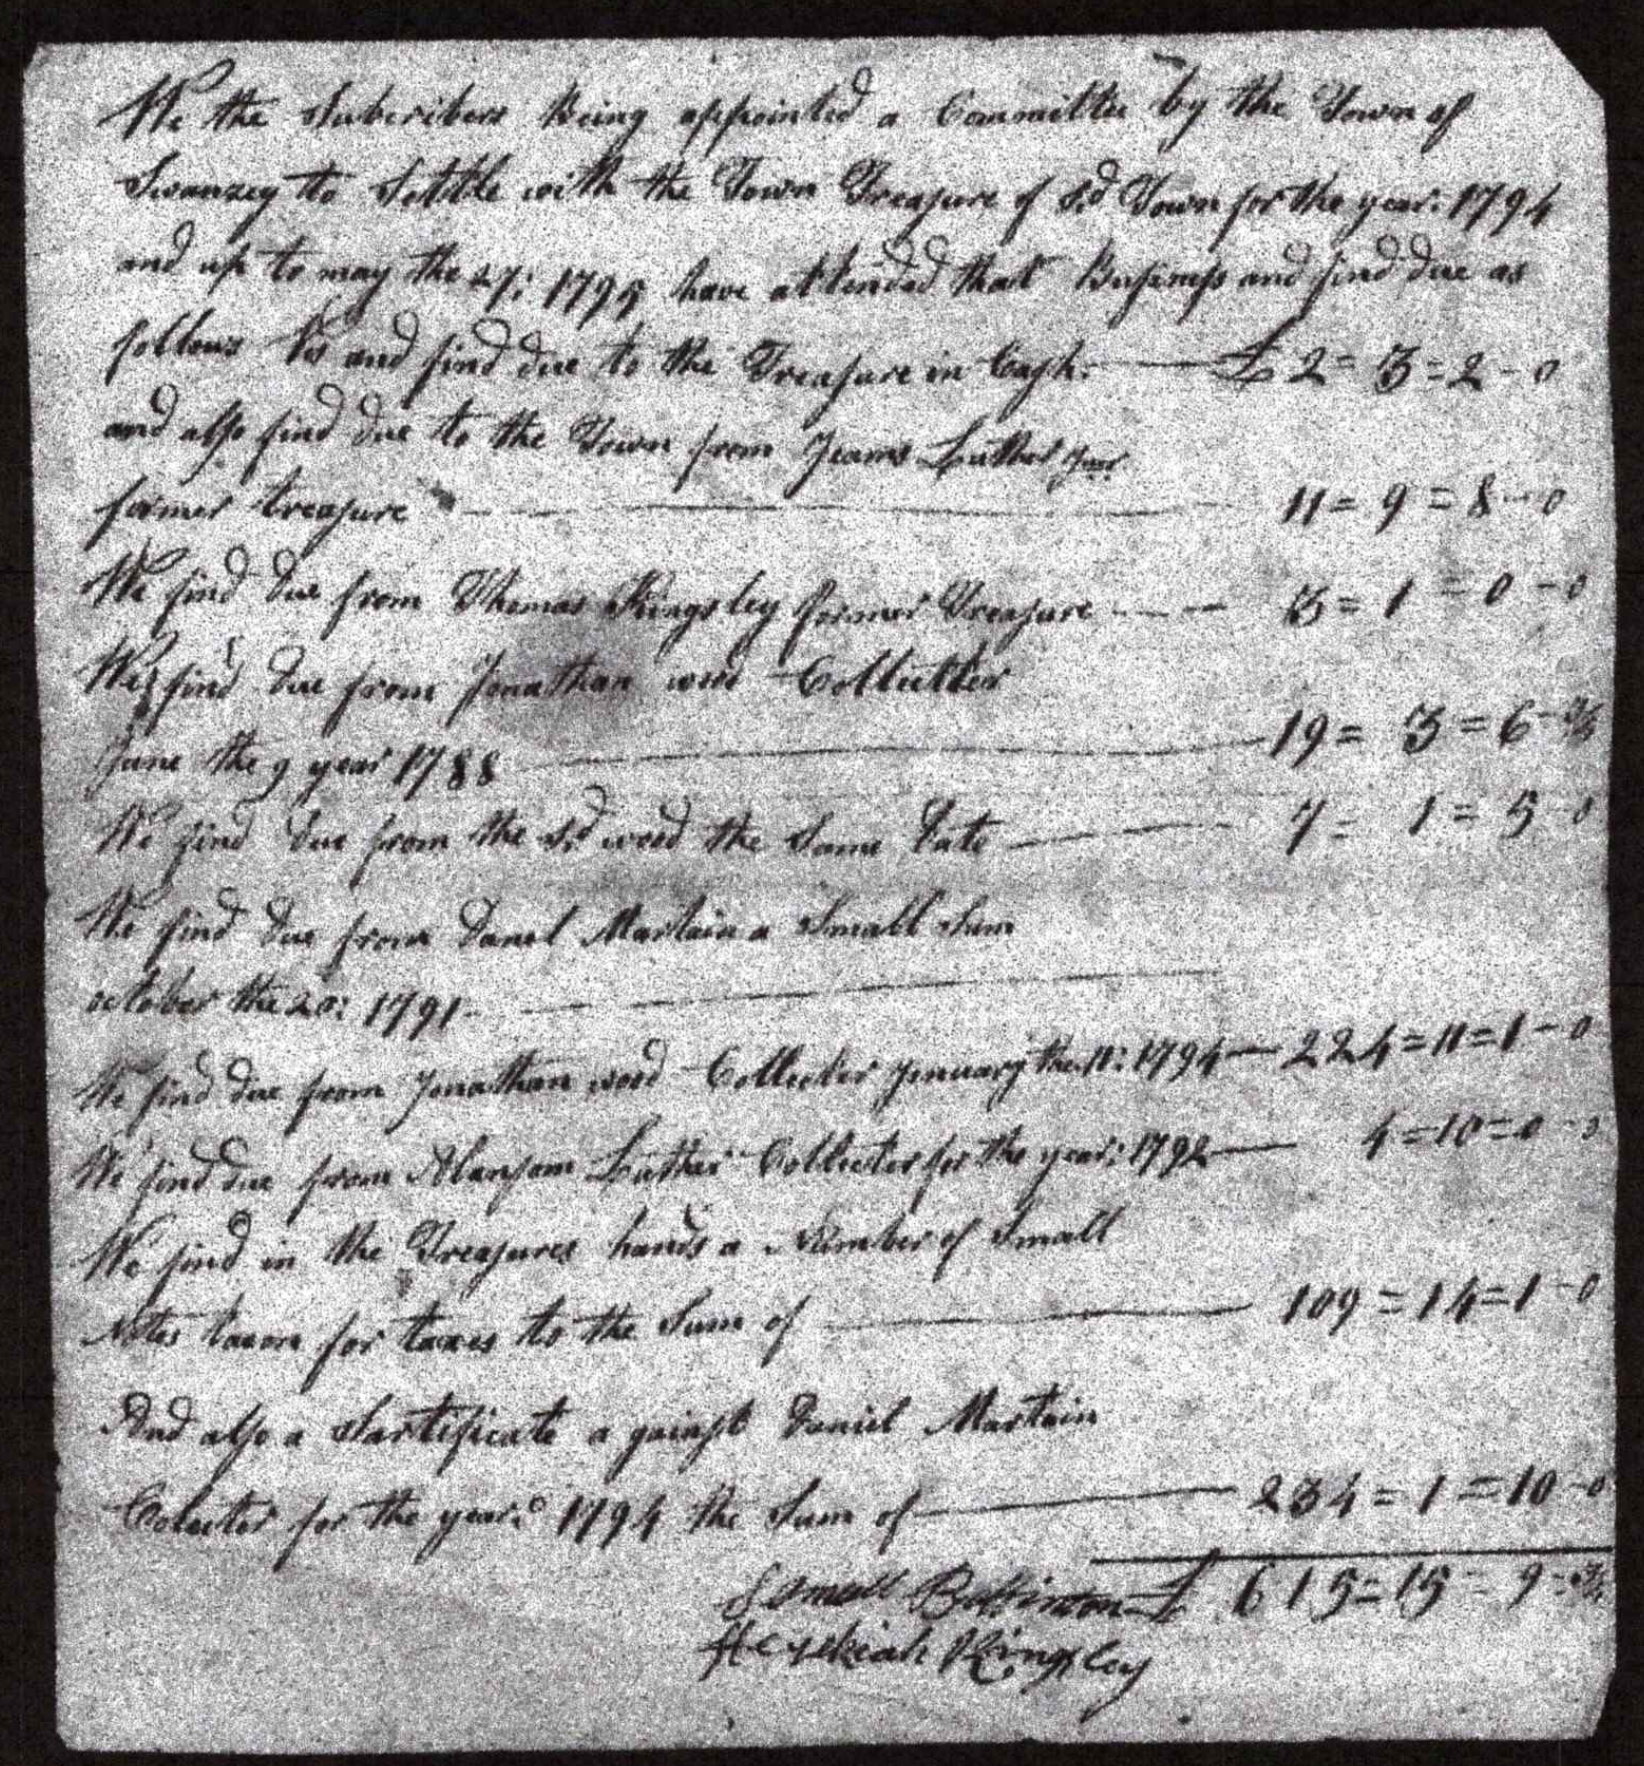 We the Subcribers Being appointed a Committee by the Town of
Swanzey to Settle with the Town Treasure of sd Town for the year: 1794
and up to may the 27: 1795 have attended that Business and find due as
follows Vs and find due to the Treasure in Cash: £ 2 = 3 = 2 - 0
and also find due to the Town from Jeams Luther Junr
former treasure 11 = 9 = 8 - 0
We find due from Thomas Kingsley former Treasure 3 = 1 = 0 - 0
We find due from Jonathan wood Collectter
June the 9 year 1788 19 = 3 = 6 - 3/4
We find due from the sd wood the Same Date 7 = 1 = 5 - 0
We find due from Danel Martain a Small Sum
october the 20: 1791
We find due from Jonathan wood Collecter Jenuary the 11: 1794 224 = 11 = 1 - 0
We find due from Luther Collecter for the year: 1792 4 = 10 = 0 - 0
We find in the Treasures hands a Number of Small
Notes taxon for taxes to the Sum of 109 = 14 = 1 - 0
And also a Sartificate a gainst Daniel Martain
Colecter for the year: 1794 the Sum of 234 = 1 = 10 - 0
£ 615 = 15 = 9 = 3/4
Hezekiah Kingsley